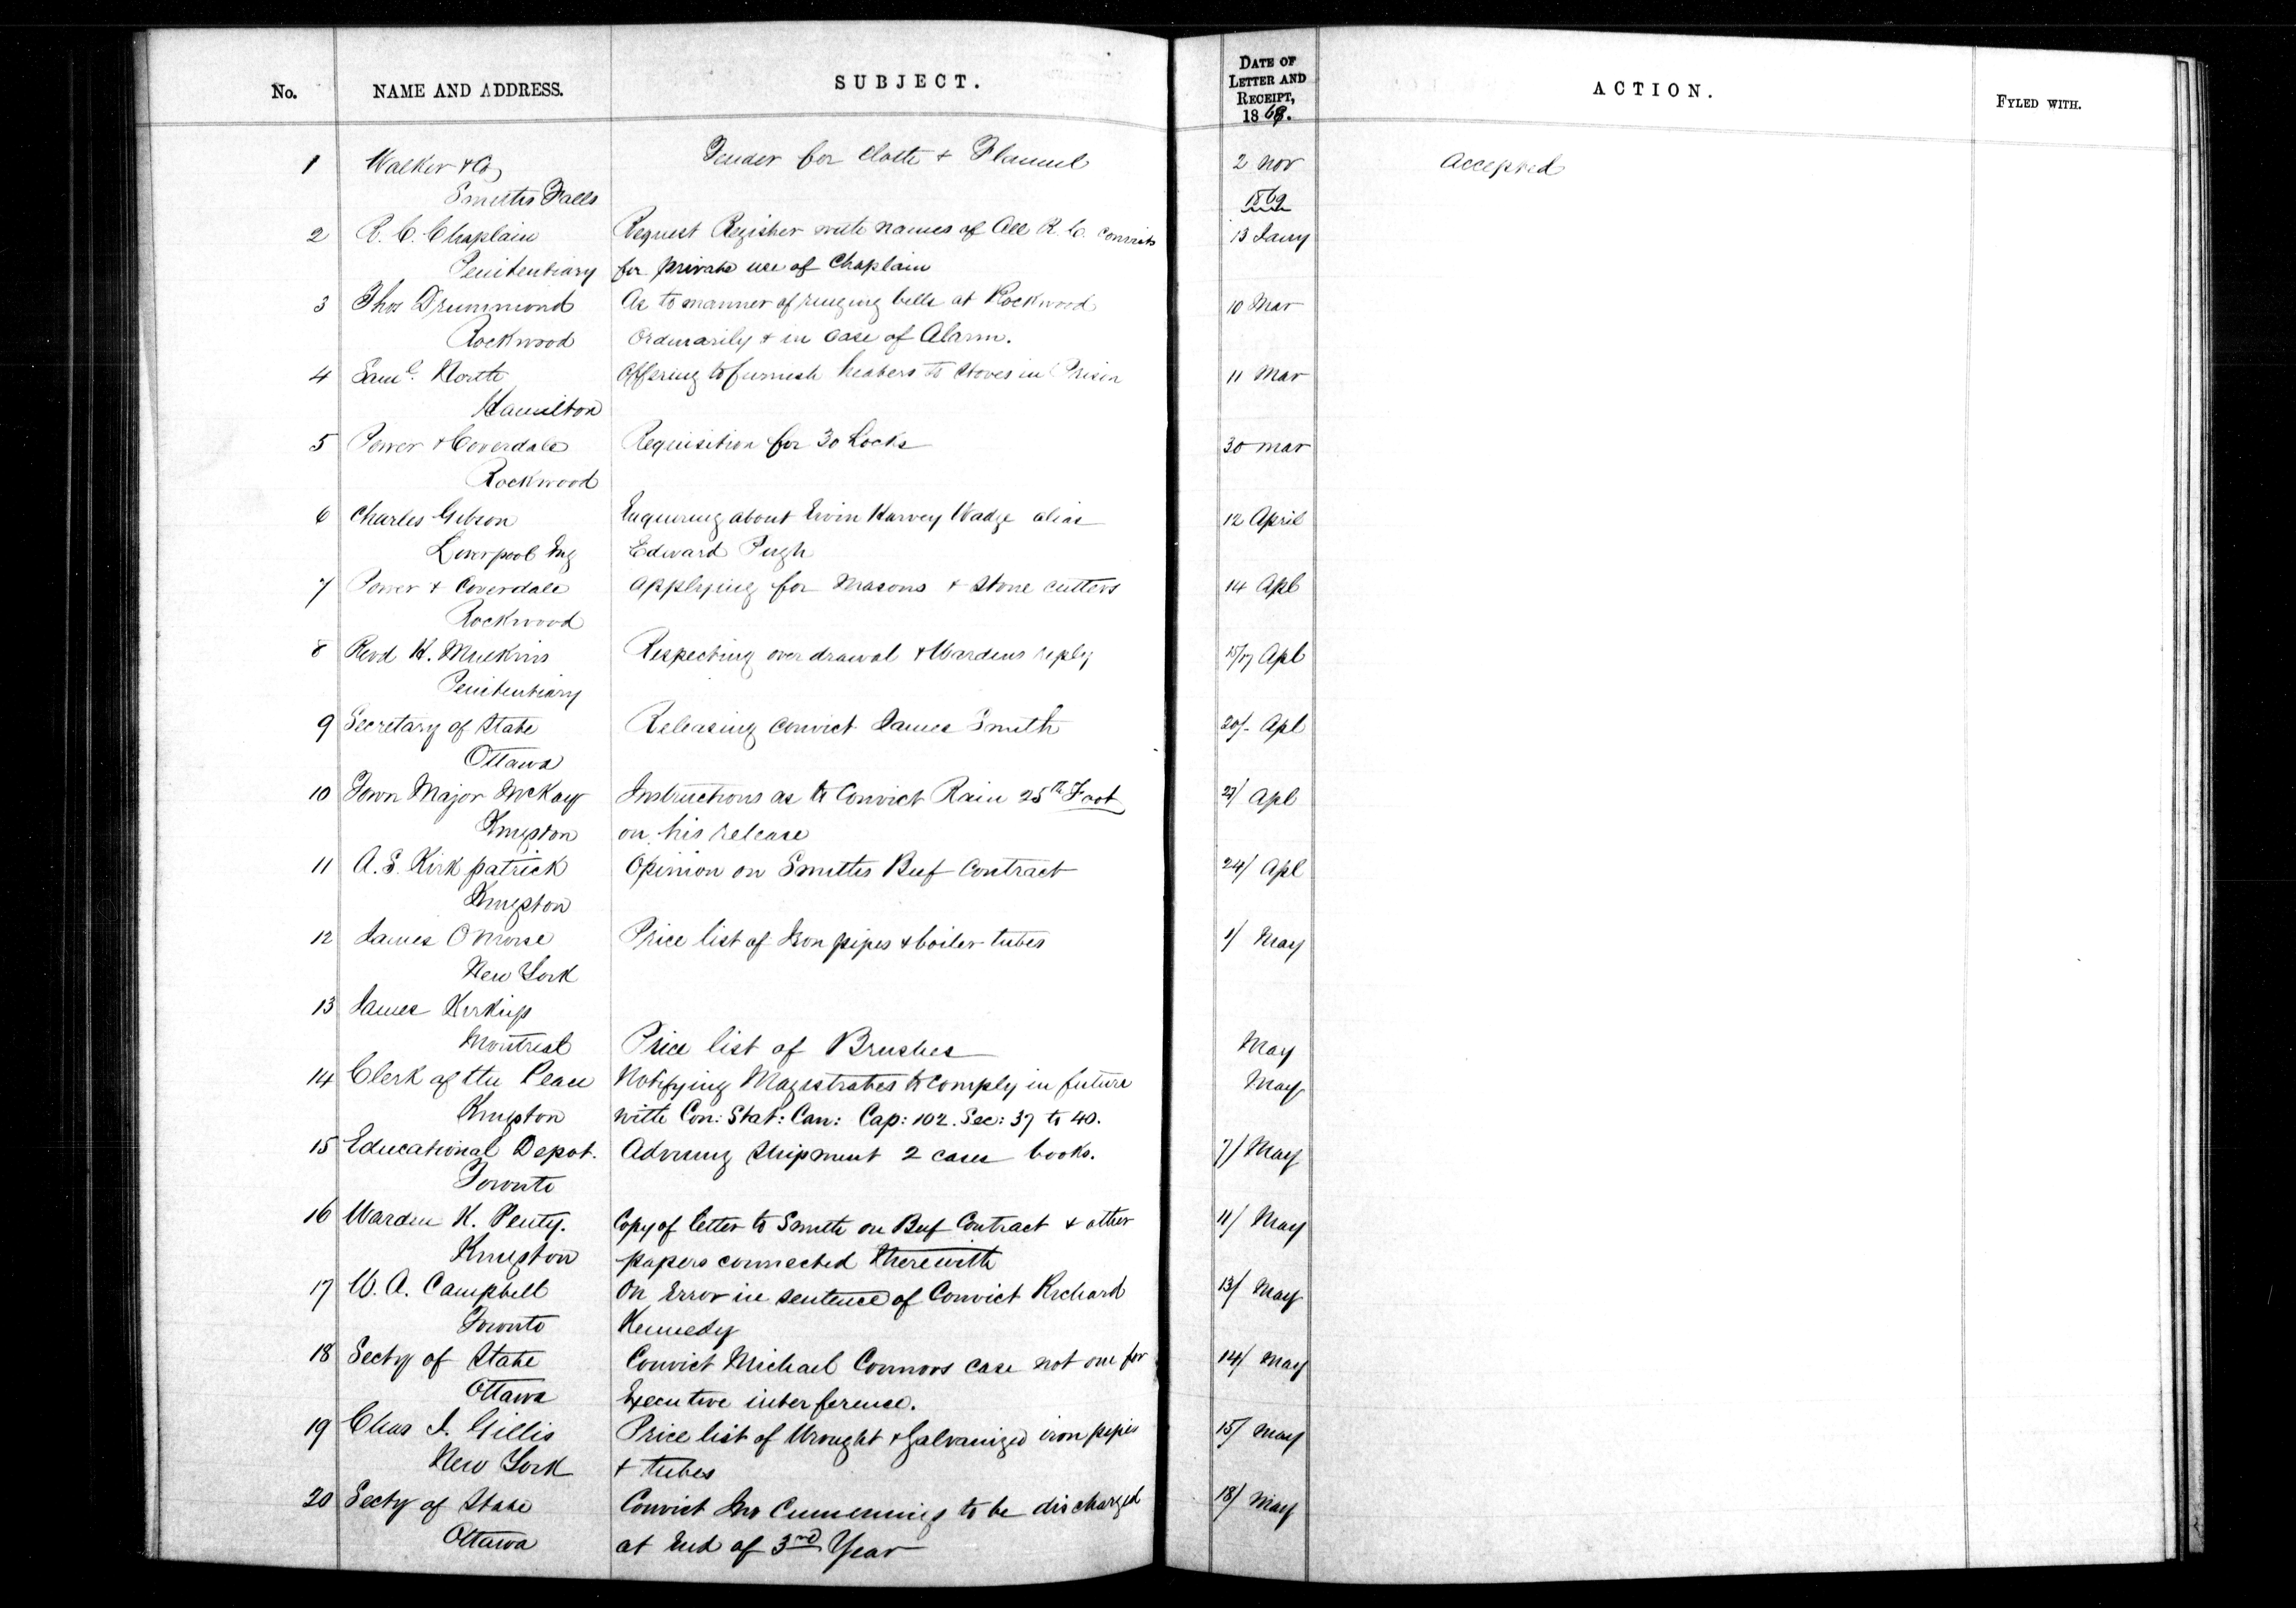 No. NAME AND ADDRESS. SUBJECT. DATE OF LETTER AND RECEIPT, 1868. ACTION. FYLED WITH.
1 Walker & Co, Tender for cloth & Flannel 2 Nov Accepted
Smiths Falls 1869
2 R. C. Chaplain Request Register with names of all R. C. convicts 13 Jany
Penitentiary for private use of Chaplain
3 Thos Drummond As to manner of ringing bells at Rockwood 10 Mar
Rockwood Ordinarily & in case of Alarm.
4 Saml. North Offering to furnish heaters to stoves in Prison 11 Mar
Hamilton
5 Power & Coverdale Requisition for 30 Locks 30 Mar
Rockwood
6 Charles Gibson Enquiring about Ervin Harvey Wadge alias 12 April
Liverpool Eng Edward Pugh
7 Power & Coverdale Applying for Masons & Stone cutters 14 Apl
Rockwood
8 Revd H. Mulkins Respecting over drawal & Wardens reply 15/17 Apl
Penitentiary
9 Secretary of State Releasing convict James Smith 20/- Apl
Ottawa
10 Town Major McKay Instructions as to Convict Rain 25th Foot Apl
Kingston on his release
11 A. S. Kirkpatrick Opinion on Smiths Beef Contract 24/ Apl
Kingston
12 James O Morse Price list of Iron pipes & boiler tubes 1/ May
New York
13 James Kirkup
Montreal Price list of Brushes May
14 Clerk of the Peace Notifying Magistrates to comply in future May
Kingston with Con: Stat: Can: Cap: 102. Sec: 37 to 40.
15 Educational Depot. Advising Shipment 2 cases books. 7/ May
Toronto
16 Warden K. Penty. Copy of letter to Smith on Beef Contract & other 11/ May
Kingston papers connected therewith
17 W. A. Campbell On Error in sentence of Convict Richard 13/ May
Toronto Kennedy
18 Secty of State Convict Michael Connors case not one for 14/ May
Ottawa Executive interference.
19 Chas J. Gillis Price list of Wrought & Galvanized iron pipes 15/ May
New York & tubes
20 Secty of State Convict Jno Cummings to be discharged 18/ May
Ottawa at End of 3rd Year